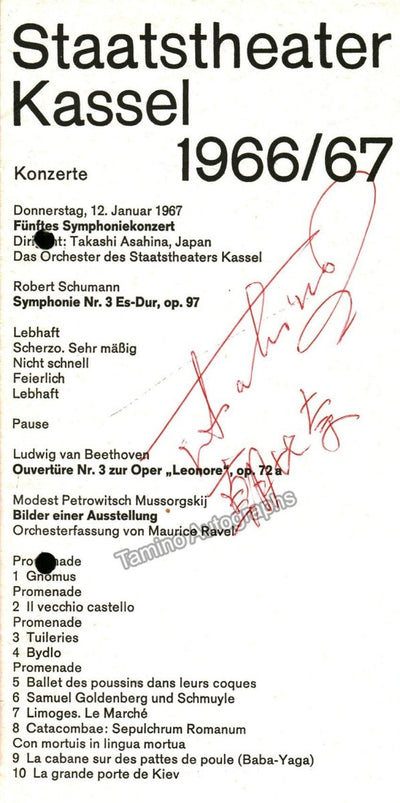 Staatstheater
Kassel
1966/67
Konzerte
Donnerstag, 12. Januar 1967
Fünftes Symphoniekonzert
Dirigent: Takashi Asahina, Japan
Das Orchester des Staatstheaters Kassel
Robert Schumann
Symphonie Nr. 3 Es-Dur, op. 97
Lebhaft
Scherzo. Sehr mäßig
Nicht schnell
Feierlich
Lebhaft
Pause
Ludwig van Beethoven
Ouvertüre Nr. 3 zur Oper „Leonore", op. 72a
Modest Petrowitsch Mussorgskij
Bilder einer Ausstellung
Orchesterfassung von Maurice Ravel
Promenade
1 Gnomus
Promenade
2 Il vecchio castello
Promenade
3 Tuileries
4 Bydlo
Promenade
5 Ballet des poussins dans leurs coques
6 Samuel Goldenberg und Schmuyle
7 Limoges. Le Marché
8 Catacombae: Sepulchrum Romanum
Con mortuis in lingua mortua
9 La cabane sur des pattes de poule (Baba-Yaga)
10 La grande porte de Kiev
T. Asahina
朝比奈 隆
Tamino Autographs